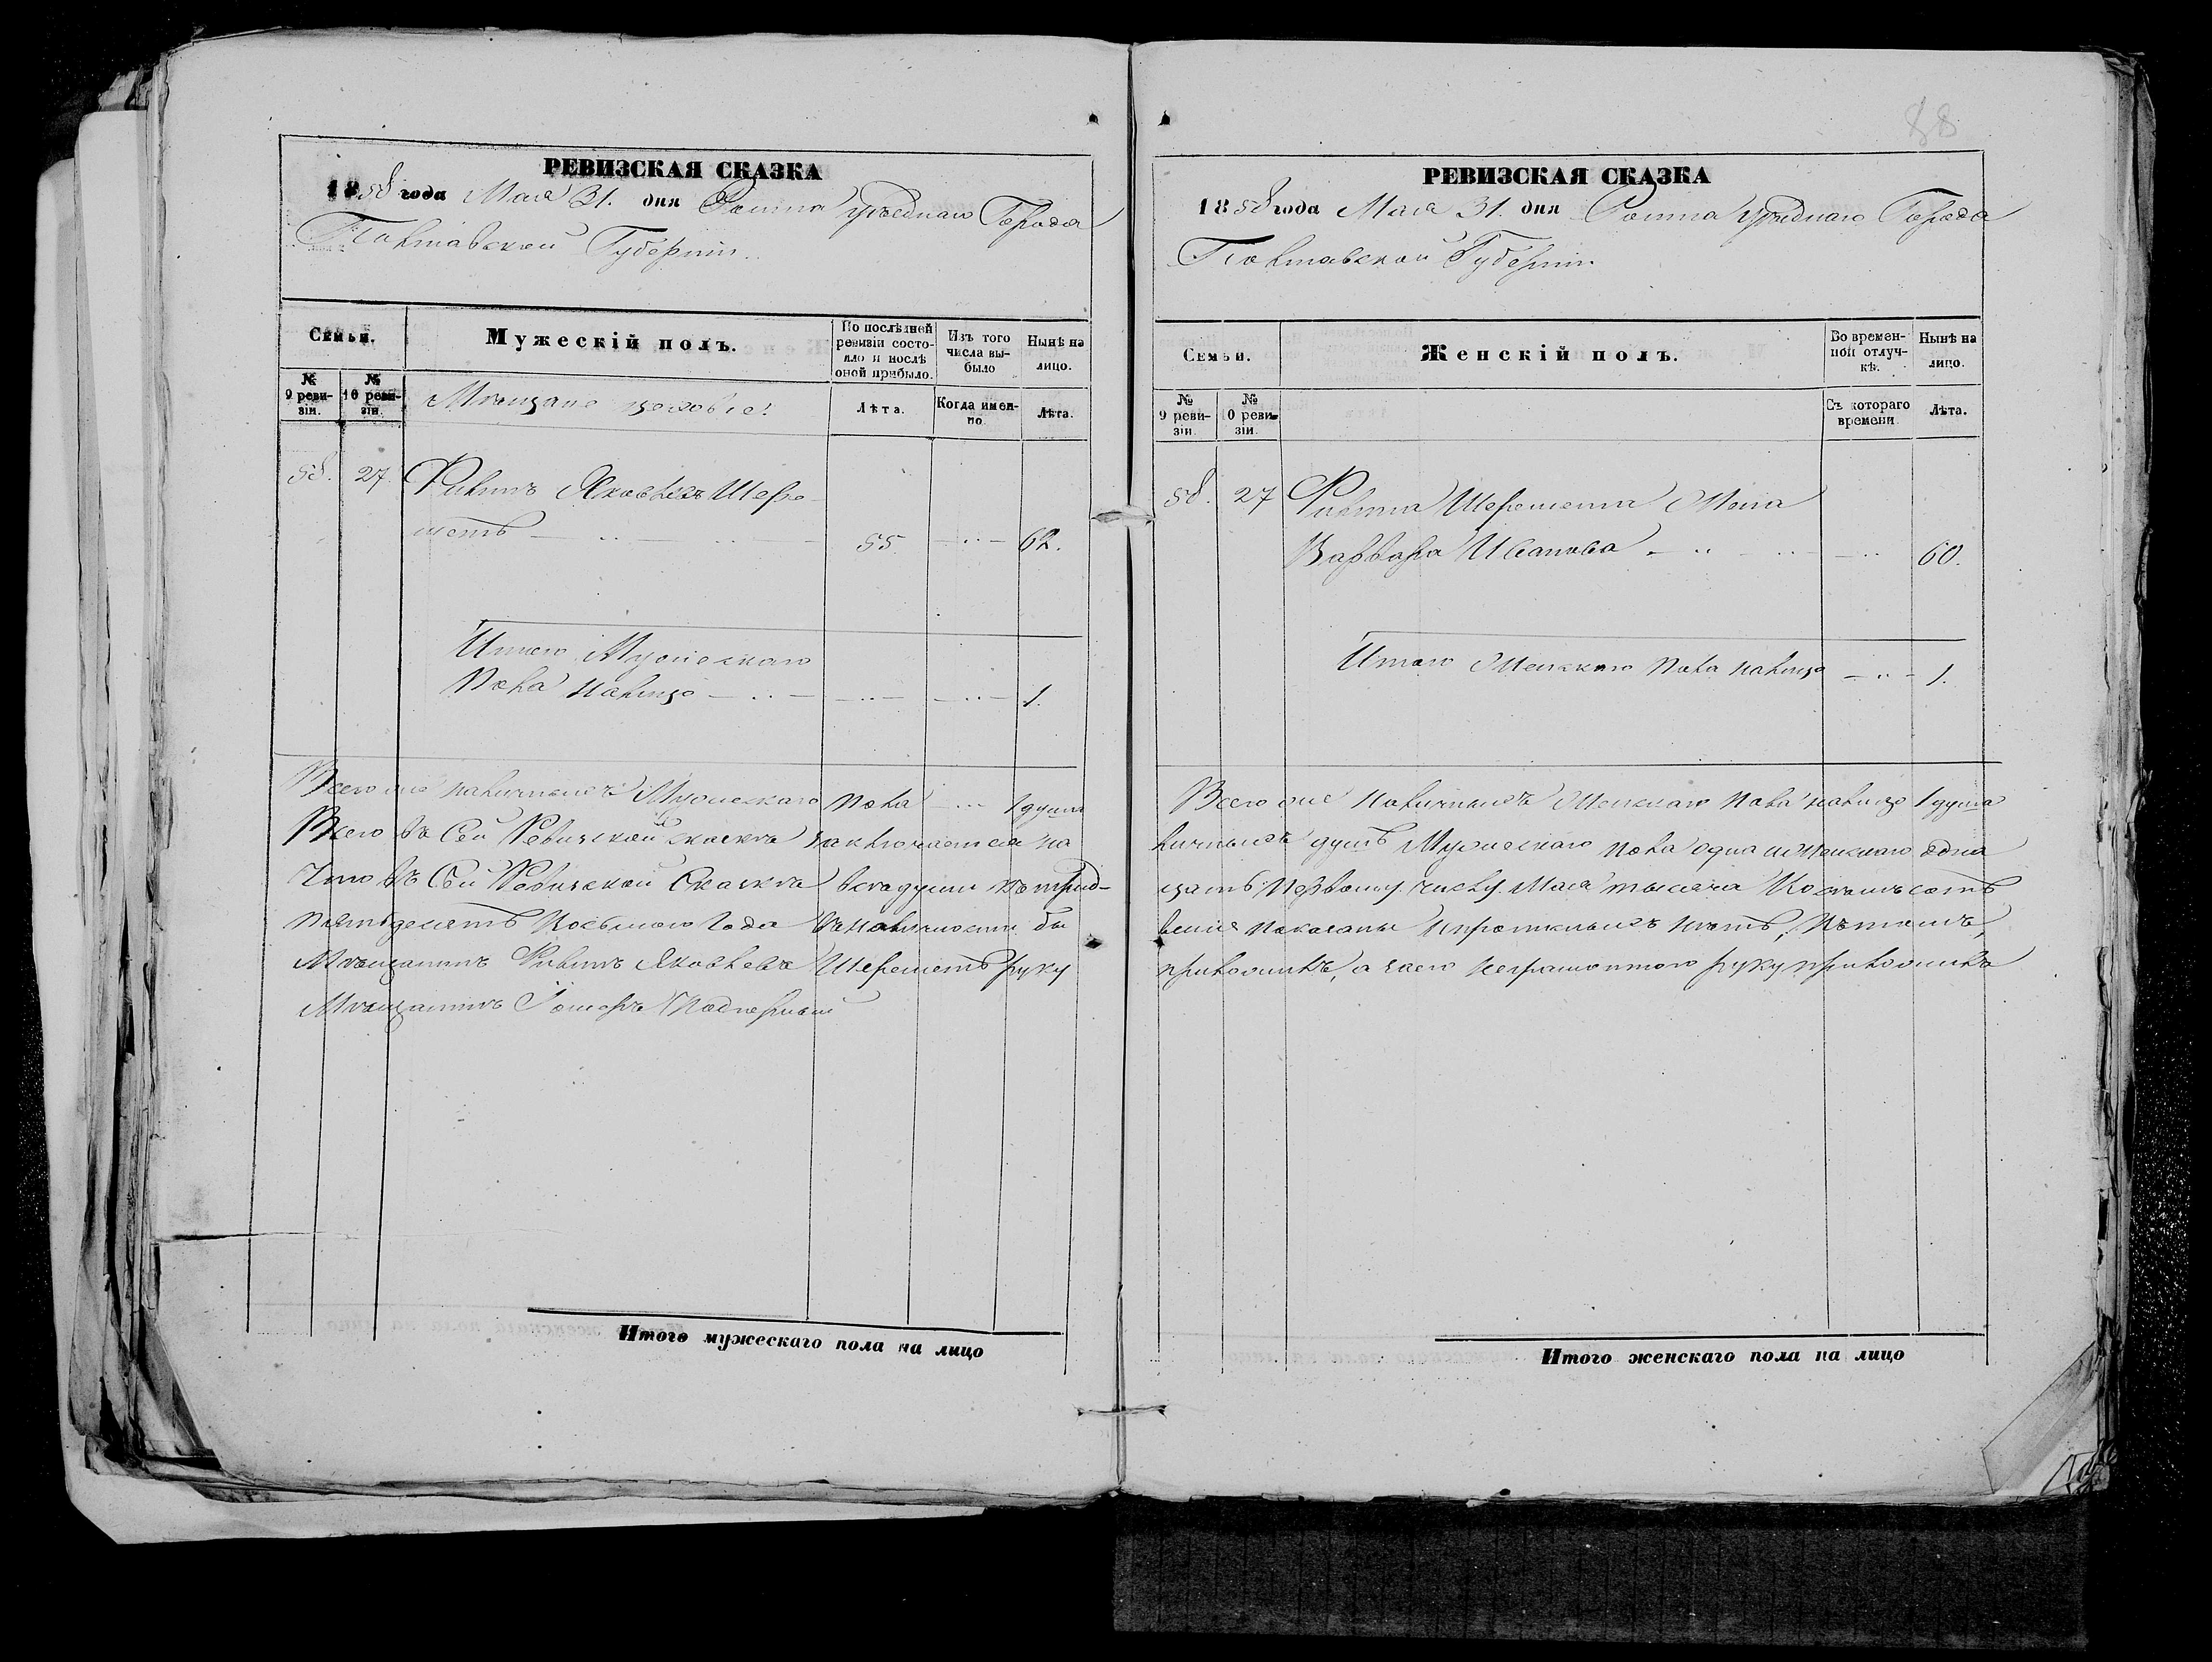 РЕВИЗСКАЯ СКАЗКА
1858 года Мая 31. дня Ромна уѣзднаго Города
Полтавской Губерніи.
Семьи.
Мужескій полъ.
По послѣдней ревизіи состояло и послѣ оной прибыло.
Изъ того числа выбыло
Нынѣ на лицо.
№ 9 ревизіи.
№ 10 ревизіи.
Мѣщане цеховые:
Лѣта.
Когда именно.
Лѣта.
58. 27. Филипъ Яковлевъ Шере-
метъ 55. 62.
Итого Мужескаго
Пола налицо 1.
Всего наличныхъ Мужескаго пола 1 душа
Всего въ Сей Ревизской сказкѣ заключается на
Что въ Сей Ревизской Сказкѣ всѣ души по трид-
пятьдесятъ восьмаго Года въ наличности бы
Мѣщанинъ Филипъ Яковлевъ Шереметъ руку
Мѣщанинъ
Итого мужескаго пола на лицо
88
РЕВИЗСКАЯ СКАЗКА
1858 года Мая 31. дня Ромна уѣзднаго Города
Полтавской Губерніи
Семьи.
Женскій полъ.
Во временной отлучкѣ.
Нынѣ на лицо.
№ 9 ревизіи
№ 10 ревизіи.
Съ котораго времени.
Лѣта.
58. 27 Филипа Шеремета Жена
Варвара Иванова 60.
Итого Женскаго пола налицо 1.
Всего наличныхъ Женскаго пола налицо 1 душа
личныхъ душъ Мужескаго пола одна и Женскаго одна
цать первому числу Мая тысяча Восемьсотъ
вшія показаны и прописныхъ нѣтъ, въ томъ,
приложилъ, а за его неграмотного руку приложилъ
Итого женскаго пола на лицо